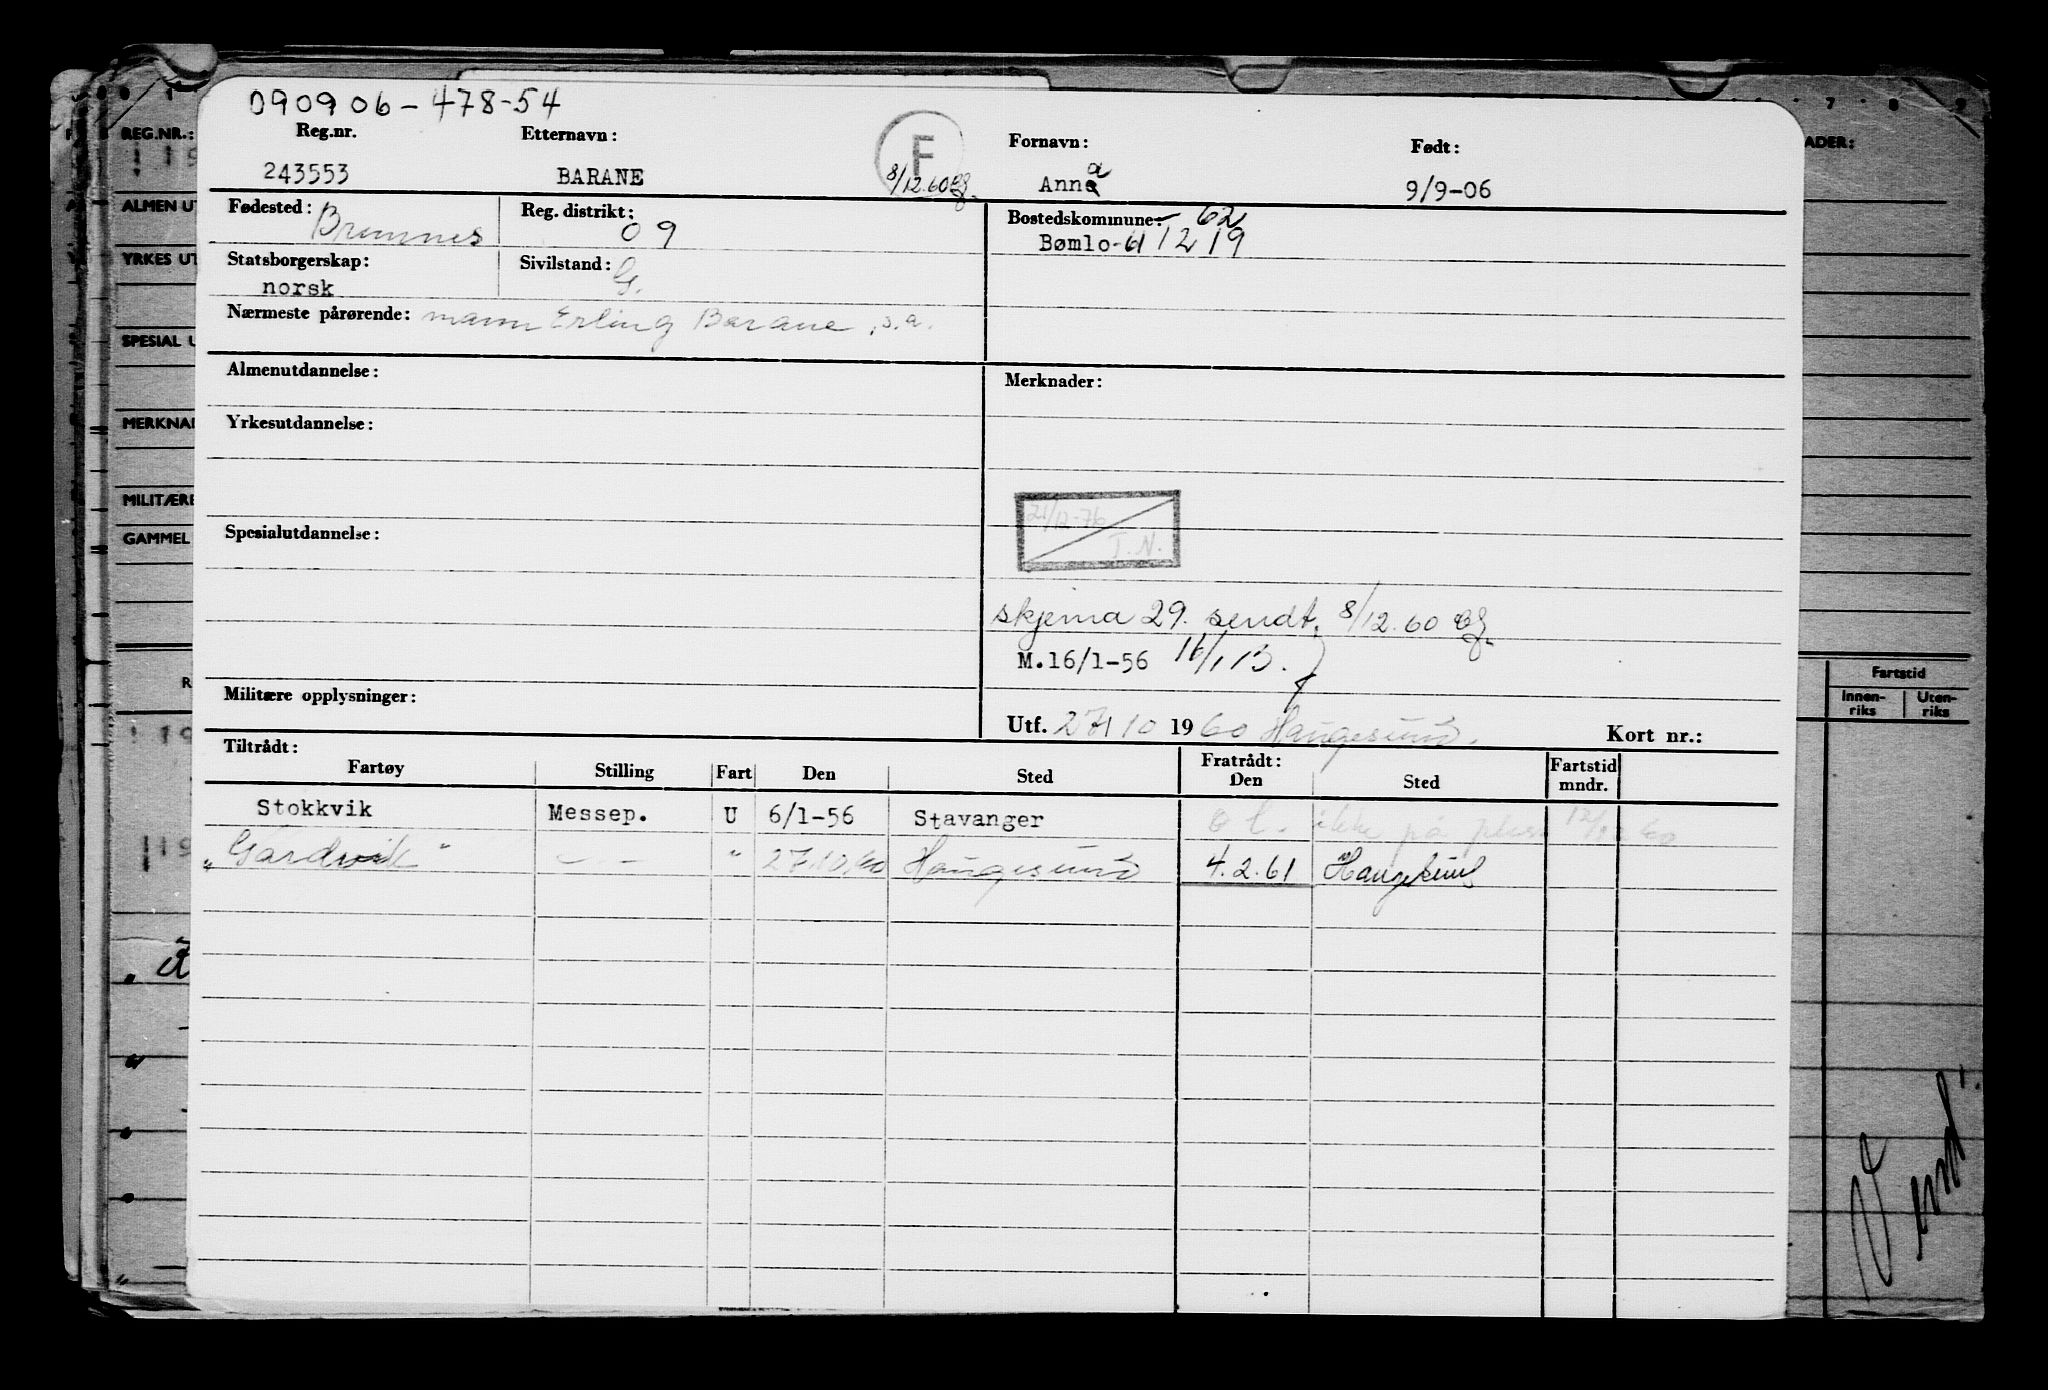 090906-478-54
Reg.nr. Etternavn: F Fornavn: Født:
243553 BARANE 8/12.60 Anna 9/9-06
Fødested: Bremnes Reg. distrikt: 09 Bostedskommune: 62
Bømlo-61 1219
Statsborgerskap: Sivilstand: G.
norsk
Nærmeste pårørende: mann Erling Barane, s.a.
Almenutdannelse: Merknader:
Yrkesutdannelse:
21/12-76
T.N.
Spesialutdannelse:
skjema 29. sendt. 8/12.60
M.16/1-56 16/1 13.
Militære opplysninger:
Utf. 27/10 1960 Haugesund. Kort nr.:
Tiltrådt: Fratrådt: Fartstid
Fartøy Stilling Fart Den Sted Den Sted mndr.
Stokkvik Messep. U 6/1-56 Stavanger ikke på 12/12 60
"Gardvik" — — " 27.10.60 Haugesund 4.2.61 Haugesund
REG.NR.:
! 19
ALMEN UT
YRKES UT
SPESIAL U
MERKNAD
MILITÆRE
GAMMEL
R
! 19
! 19
7 8 9
ADER:
Fartstid
Innen-
riks
Uten-
riks